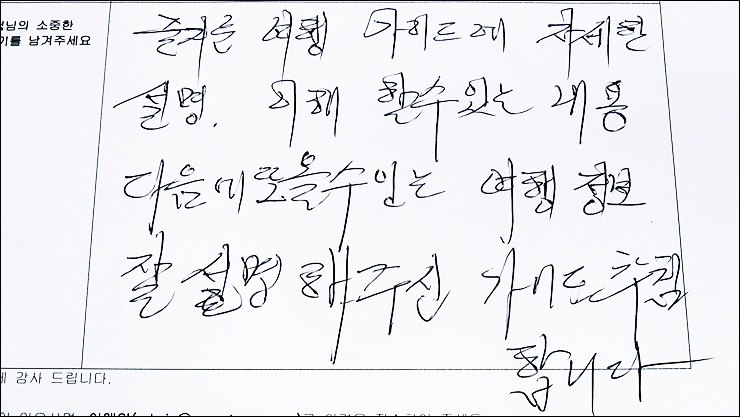 님의 소중한
기를 남겨주세요
즐거운 여행 가이드에 자세한
설명. 이해 할수있는 내용
다음에 또 올수 있는 여행 정보
잘 설명 해주신 가이드 추천
합니다
감사 드립니다.